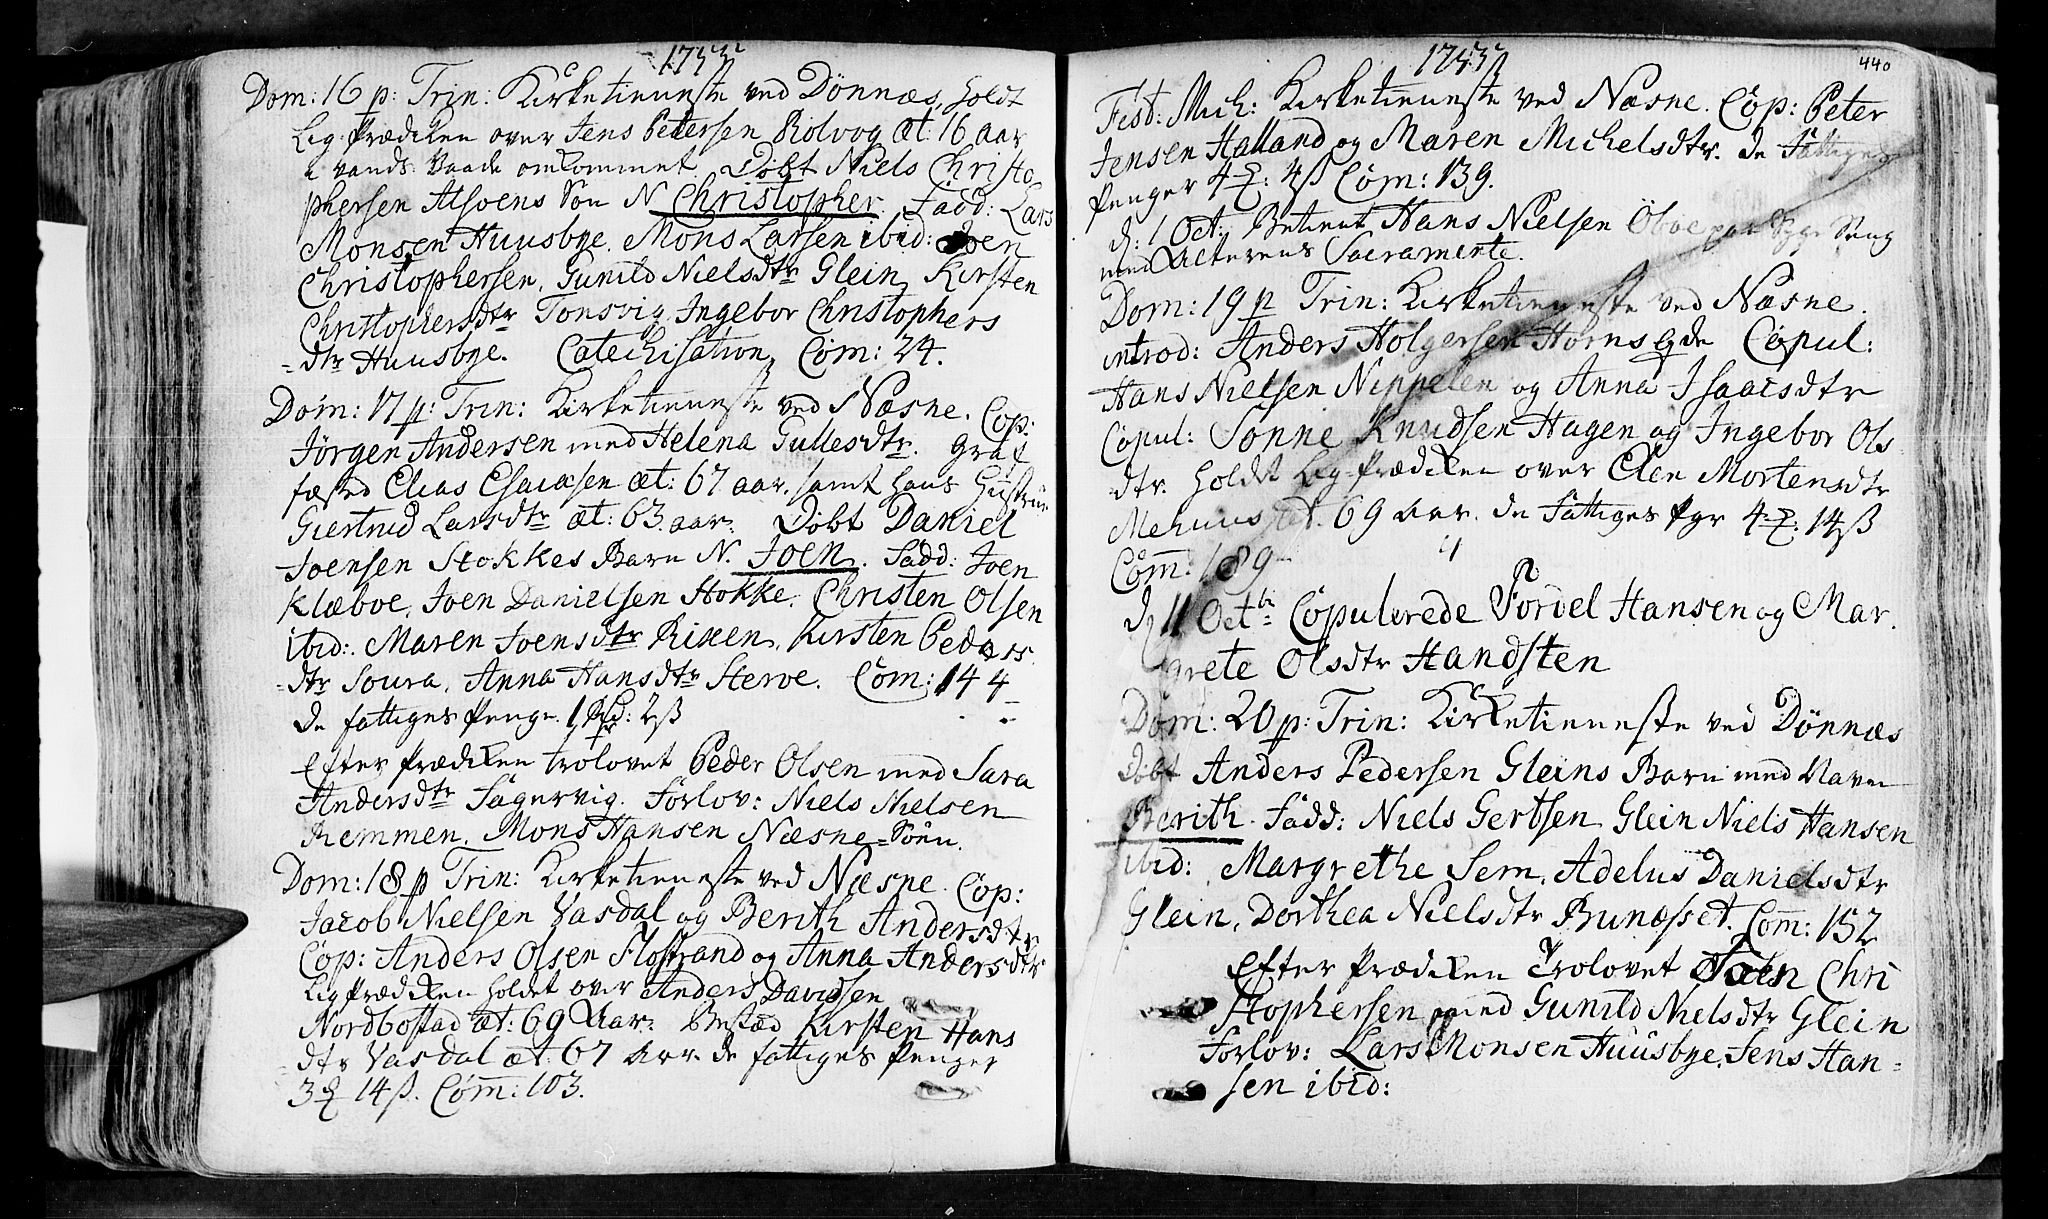 1753
Dom: 16 p: Trin: Kirketieneste ved Dönnæs, holdt
Lig-Prædiken over Jens Petersen Rolvog æt: 16 aar
i vands Vaade omkommet. Döbt Niels Christo
phersen Alsoens Sön N. Christopher. Fadd: Lars
Monsen Huusbye. Mons Larsen ibid: Joen
Christophersen, Gunild Nielsdtr Glein, Kirsten
Christophersdtr Tonsvig, Ingebor Christophers
-dtr Huusbye. Catechisation, Com: 24.
Dom: 17 p: Trin: Kirketieneste ved Næsne. Cop:
Jörgen Andersen med Helena Tullesdtr. Graf
fæsted Elias Esaiasen æt: 67 aar, samt hans Hustrue
Giertrud Larsdtr æt: 63 aar. Döbt Daniel
Joensen Stokkes Barn N. Joen. Fadd: Joen
Klæboe, Joen Danielsen Stokke, Christen Olsen
ibid: Maren Joensdtr Rixen, Kirsten Peders
-dtr Soura, Anna Hansdtr Steroe. Com: 144
de fattiges Penge. 1 Rd: 2 ß
Efter Prædiken trolovet Peder Olsen med Sara
Andersdtr Fagervig. Forlov: Niels Nielsen
Remmen, Mons Hansen Næsne-Söen.
Dom: 18 p Trin: Kirketieneste ved Næsne. Cop:
Jacob Nielsen Vasdal og Berith Andersdtr
Cop: Anders Olsen Flostrand og Anna Andersdtr
Lig Prædiken holdet over Anders Davidsen
Nordbostad æt: 69 Aar. Kirsten Hans
-dtr Vasdal æt. 67 Aar. de fattiges Penger
3 14 ß. Com: 103.
1753
440
Fest: Mich: Kirketieneste ved Næsne. Cop: Peter
Jensen Halland og Maren Michelsdtr. de Fattiges
Penger 4 4 ß Com: 139.
d: 1 Oct: Betient Hans Nielsen Seng
med Alterens Sacramente.
Dom: 19 p Trin: Kirketieneste ved Næsne.
introd: Anders Holgersen Horns Copul:
Hans Nielsen Nippelen og Anna Isaacsdtr
Copul: Sonne Knudsen Hagen og Ingebor Ols
dtr. holdt Lig-Prædiken over Elen Mortensdtr
Mehuus æt. 69 Aar. de Fattiges Pgr 4 14 ß
Com: 189
d 11 Octb Copulerede Tordel Hansen og Mar
grete Olsdtr Handsten
Dom: 20 p: Trin: Kirketieneste ved Dönnæs
Döbt Anders Pedersen Gleins Barn med Navn
Berith. Fadd: Niels Gertsen Glein Niels Hansen
ibid: Margrethe Sem, Adelus Danielsdtr
Glein, Dorthea Nielsdtr Bundsset. Com: 152
Efter Prædiken Trolovet Joen Chri
stophersen med Gunild Nielsdtr Glein
Forlov: Lars Monsen Huusbye, Jens Han-
sen ibid: